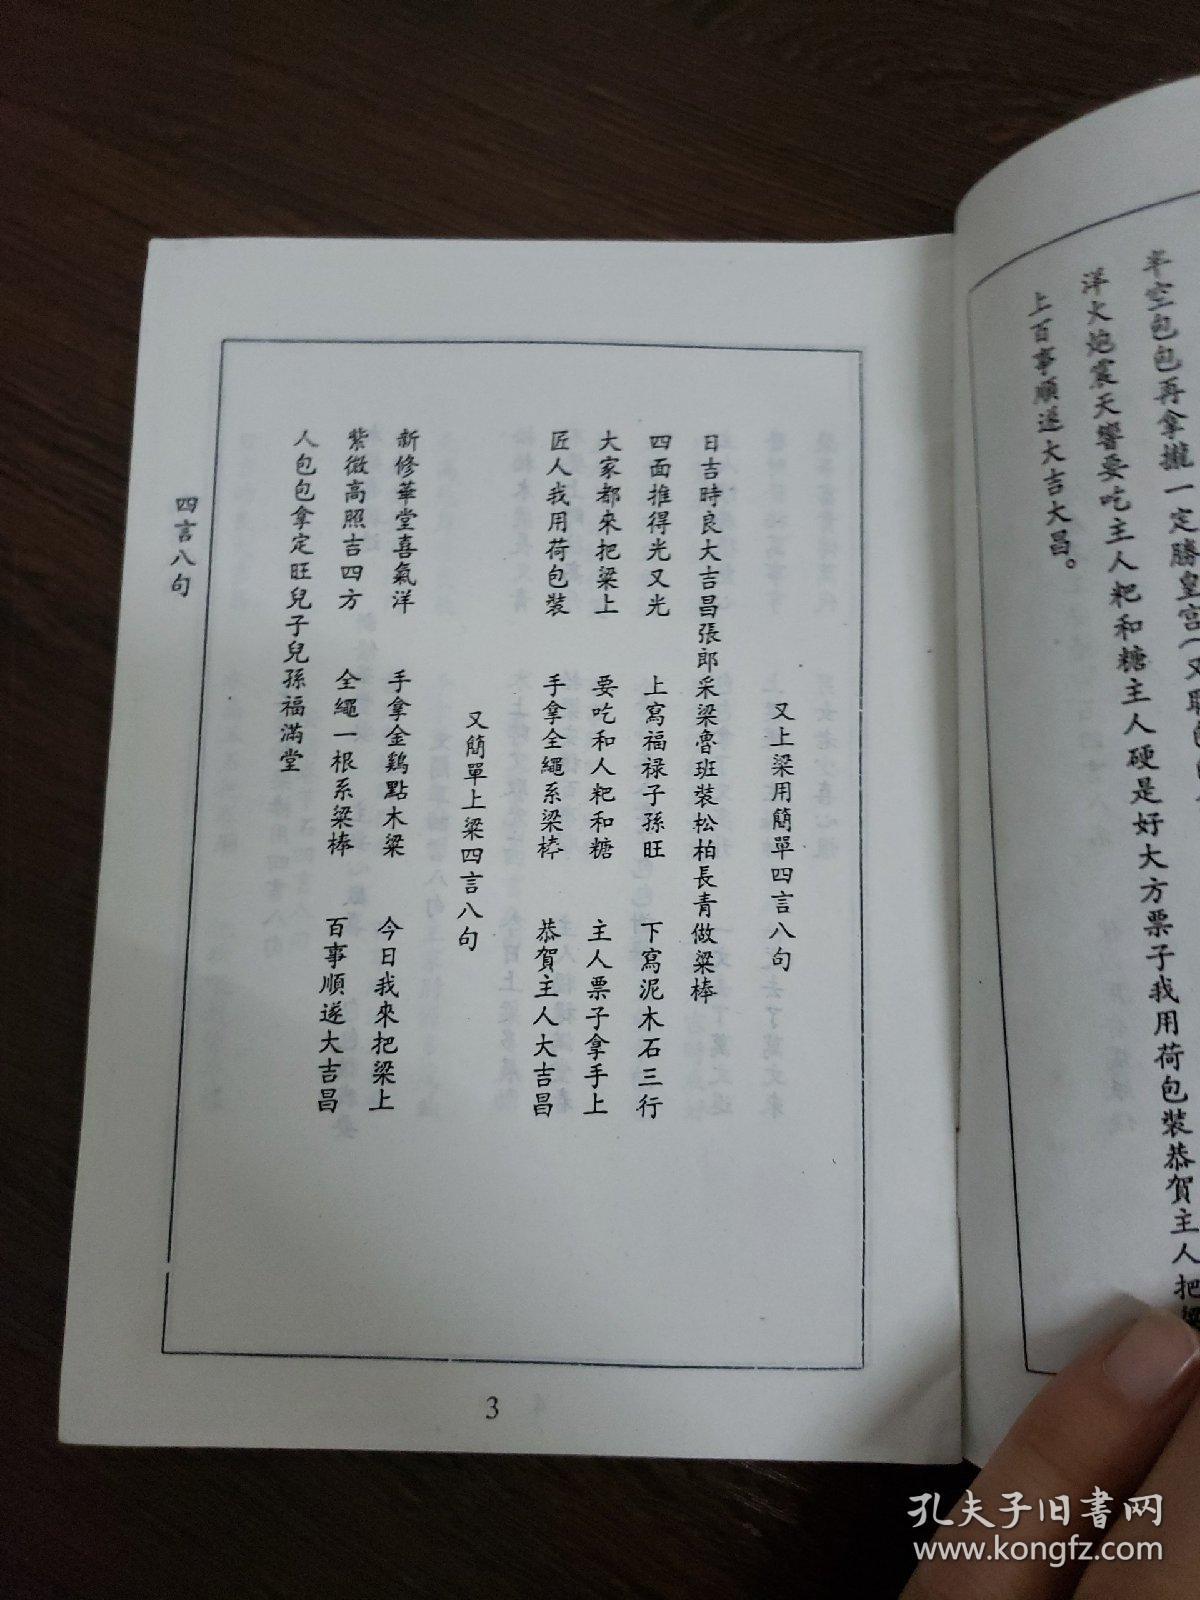 半空包包再拿攏一定勝皇宮（又
洋火炮震天響要吃主人粑和糖主人硬是好大方票子我用荷包裝恭賀主人把梁
上百事順遂大吉大昌。
又上梁用簡單四言八句
日吉時良大吉昌張郎采梁魯班裝松柏長青做梁棒
四面推得光又光 上寫福禄子孫旺 下寫泥木石三行
大家都來把梁上 要吃和人粑和糖 主人票子拿手上
匠人我用荷包裝 手拿全繩系梁棒 恭賀主人大吉昌
又簡單上梁四言八句
新修華堂喜氣洋 手拿金鷄點木梁 今日我來把梁上
紫微高照吉四方 全繩一根系梁棒 百事順遂大吉昌
人包包拿定旺兒子兒孫福滿堂
四言八句
3
孔夫子旧书网
www.kongfz.com